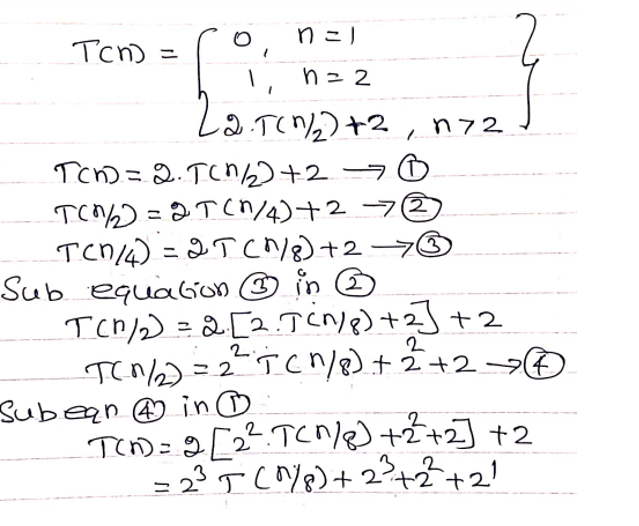 T(n) = { 0, n=1
1, n=2
2.T(n/2)+2, n>2 }
T(n) = 2.T(n/2)+2 → ①
T(n/2) = 2T(n/4)+2 → ②
T(n/4) = 2T(n/8)+2 → ③
Sub equation ③ in ②
T(n/2) = 2[2.T(n/8)+2]+2
T(n/2) = 2².T(n/8)+2²+2 → ④
Sub eqn ④ in ①
T(n) = 2[2².T(n/8)+2²+2]+2
= 2³ T(n/8)+2³+2²+2¹